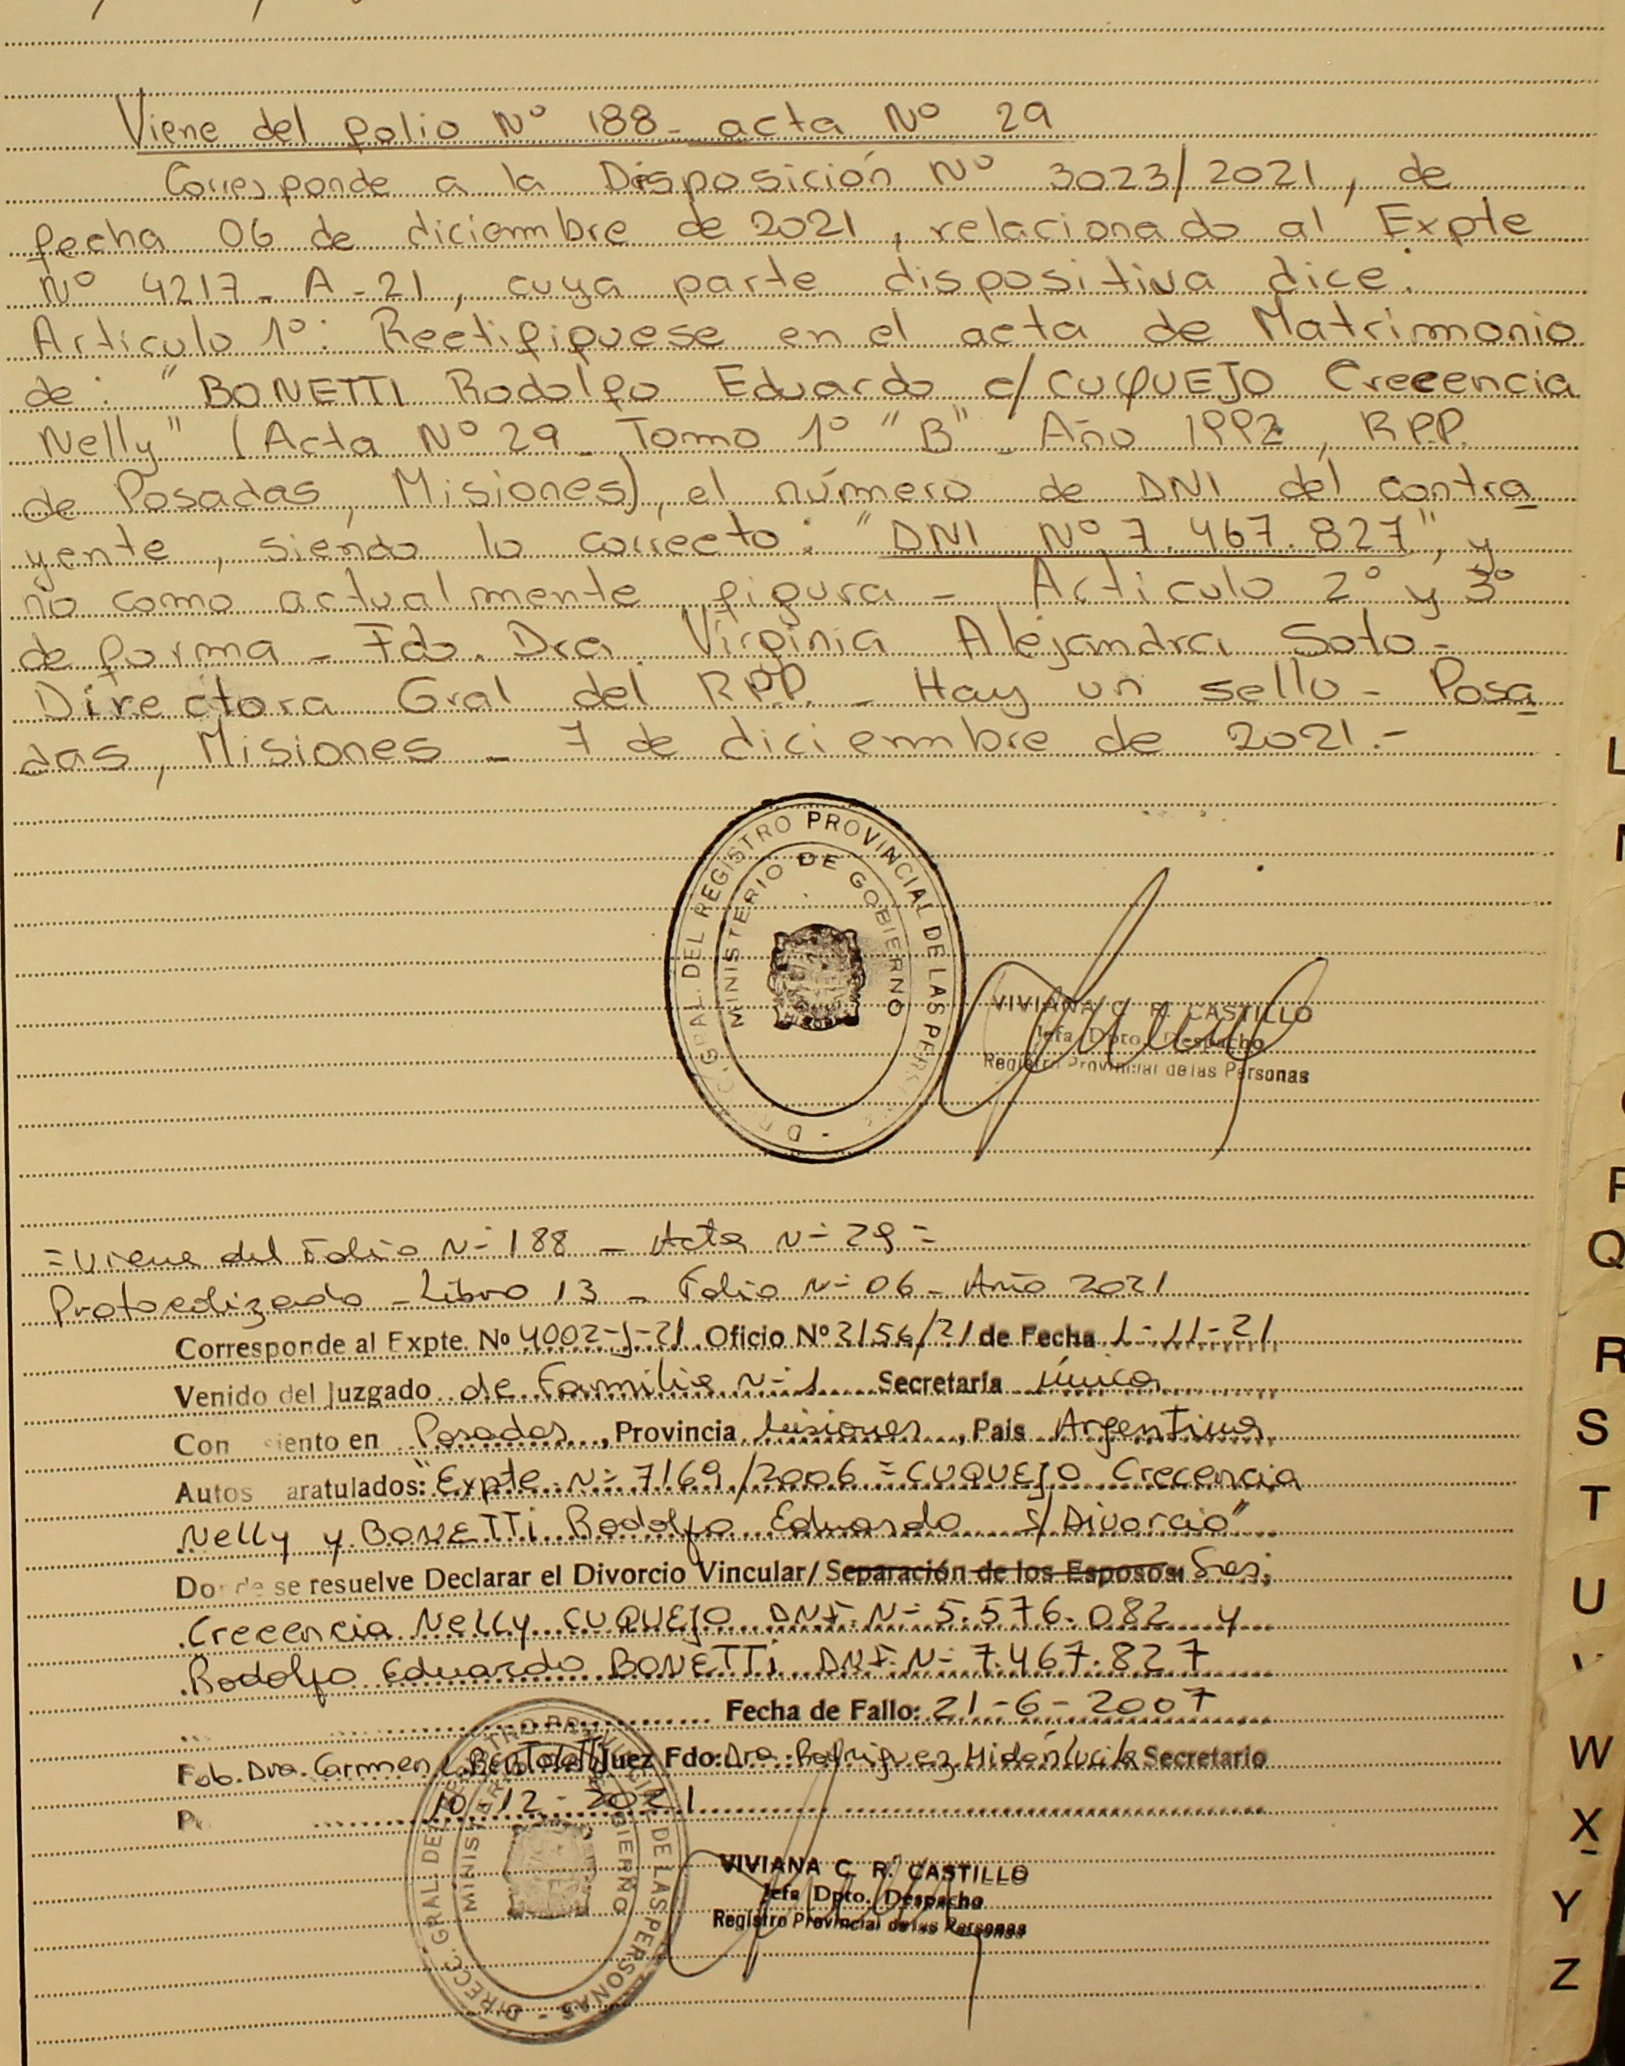 Viene del folio Nº 188- acta Nº 29
Corresponde a la Disposición Nº 3023/2021, de
fecha 06 de diciembre de 2021, relacionado al Expte
Nº 4217-A-21, cuya parte dispositiva dice:
Artículo 1º: Rectifiquese en el acta de Matrimonio
de: "BONETTI Rodolfo Eduardo c/CUQUEJO Crecencia
Nelly" (Acta Nº 29_ Tomo 1º "B"_ Año 1992, R.P.P.
de Posadas, Misiones), el número de DNI del contra
yente, siendo lo correcto: "DNI Nº 7.467.827", y
no como actualmente figura - Artículo 2º y 3º
de forma - Fdo. Dra. Virginia Alejandra Soto-
Directora Gral del R.P.P. - Hay un sello - Posa
das, Misiones - 7 de diciembre de 2021.-
GRAL. DEL REGISTRO PROVINCIAL DE LAS
MINISTERIO DE GOBIERNO
VIVIANA C. R. CASTILLO
Jefa Dpto. Despacho
Registro Provincial de las Personas
=Viene del Folio Nº 188 - Acta Nº 29=
Protocolizado - Libro 13 - Folio Nº 06 - Año 2021
Corresponde al Expte. Nº 4002-J-21 Oficio Nº 2156/21 de Fecha 1-11-21
Venido del Juzgado de Familia Nº 1 Secretaría única
Con siento en Posadas, Provincia Misiones, País Argentina
Autos aratulados: "Expte Nº 7169/2006 = CUQUEJO Crecencia
Nelly y BONETTI Rodolfo Eduardo S/Divorcio"
Donde se resuelve Declarar el Divorcio Vincular/Separación de los Esposos: Sres;
Crecencia Nelly CUQUEJO DNI Nº 5.576.082 y
Rodolfo Eduardo BONETTI DNI Nº 7.467.827
Fecha de Fallo: 21-6-2007
Fdo. Dra. Carmen Juez Fdo: Dra. Rodriguez Secretario
10-12-2021
DIRECC. GRAL DEL DE LAS PERSONAS
VIVIANA C. R. CASTILLO
Jefa Dpto. Despacho
Registro Provincial de las Personas
L
P
Q
R
S
T
U
V
W
X
Y
Z